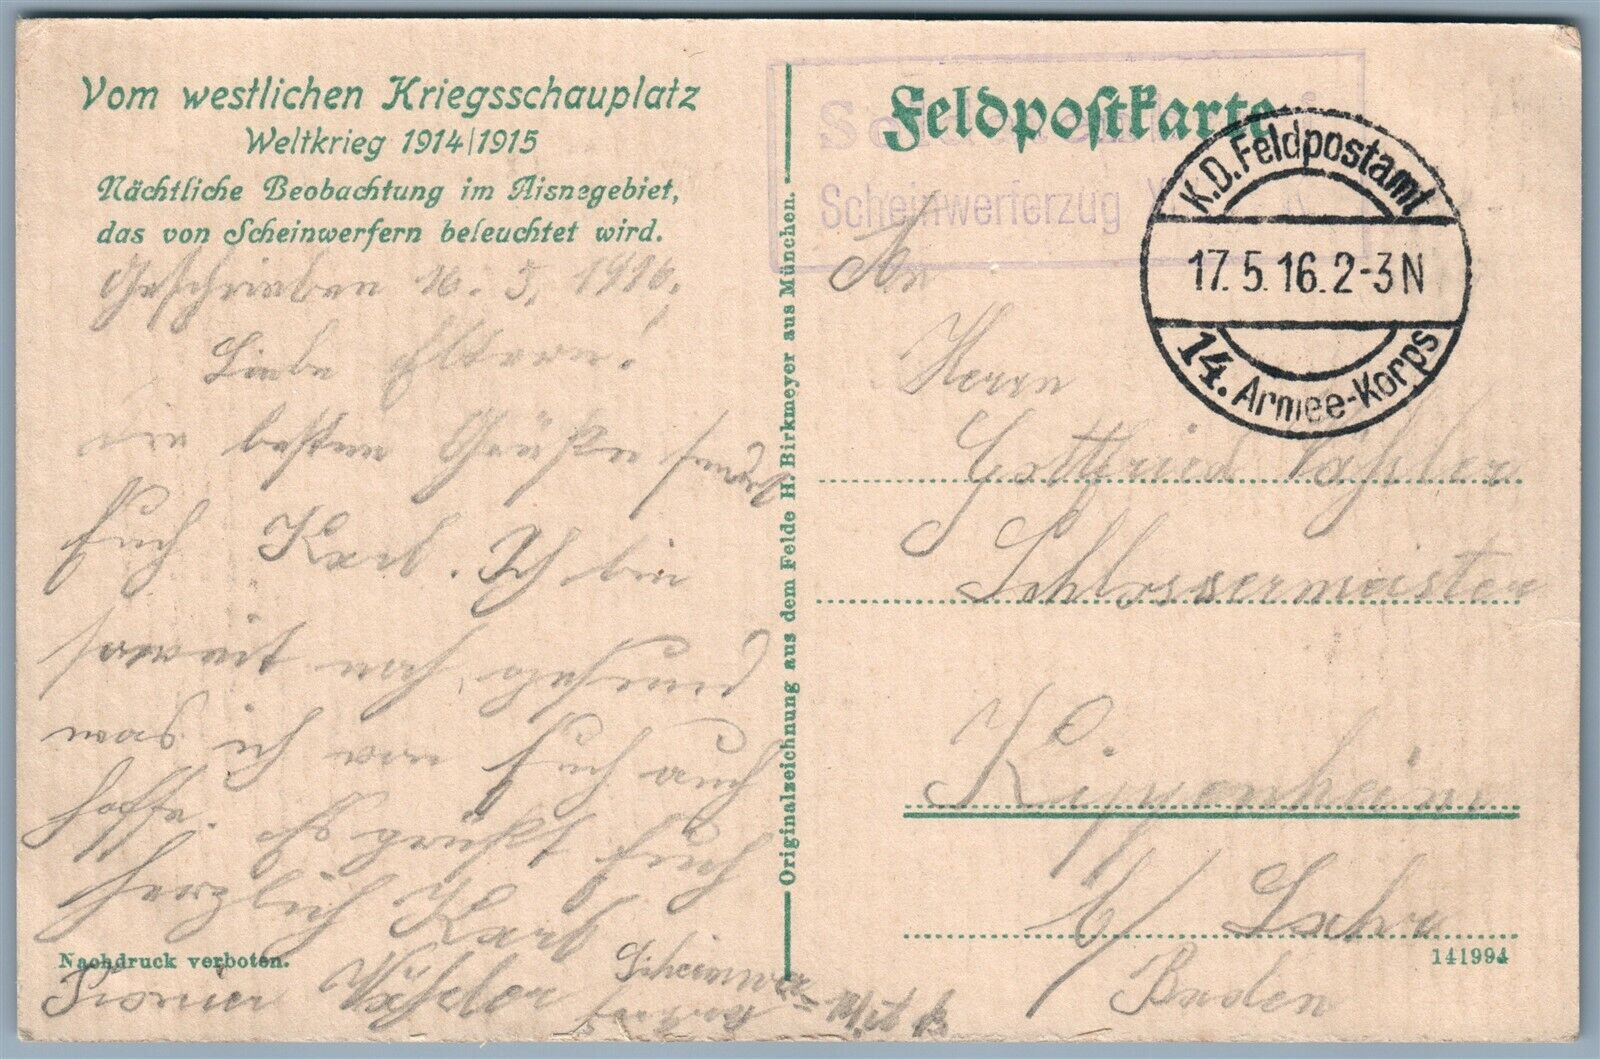 Vom westlichen Kriegsschauplatz
Weltkrieg 1914|1915
Nächtliche Beobachtung im Aisnegebiet,
das von Scheinwerfern beleuchtet wird.
Geschrieben 16. 5. 1916.
Liebe Eltern!
die besten Grüße sendet
Euch Karl. Ich bin
soweit noch gesund
was ich von Euch auch
hoffe. Es grüßt Euch
herzlich Karl
Pionier
Nachdruck verboten.
Originalzeichnung aus dem Felde H. Birkmeyer aus München.
Feldpostkarte
Scheinwerferzug
K.D. Feldpostamt
17.5.16.2-3N
14. Armee-Korps
An
Herrn
Gottfried
Schlossermeister
Kippenheim
b/ Lahr
Baden
141994